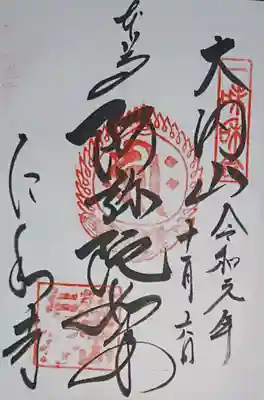 大内山
令和元年
十一月六日
奉拝
阿弥陀如来
仁和寺